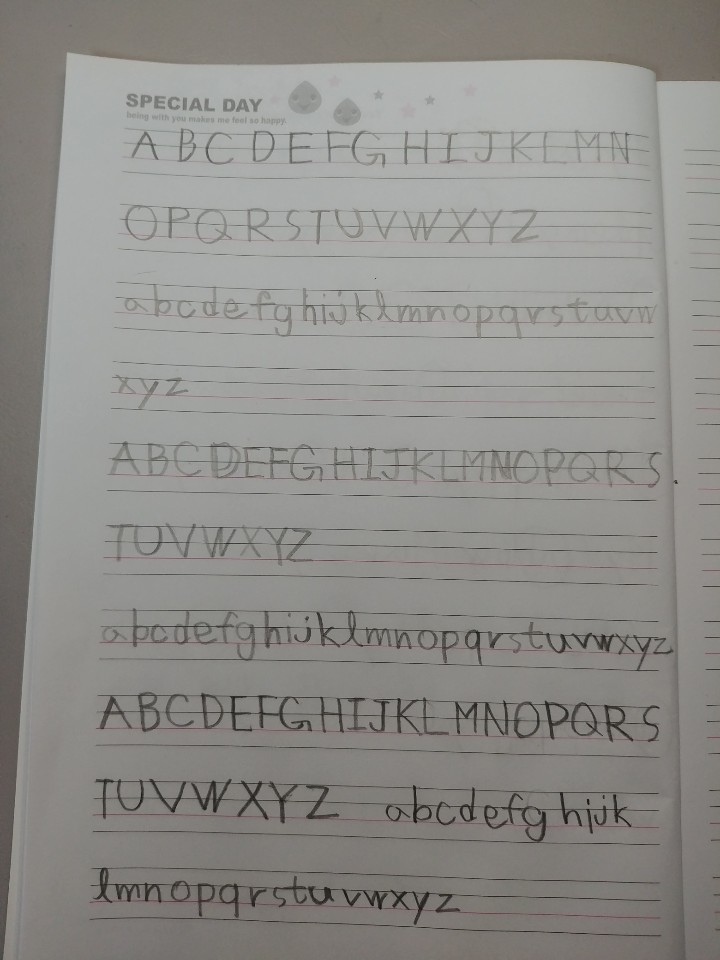 SPECIAL DAY
being with you makes me feel so happy.
A B C D E F G H I J K L M N
O P Q R S T U V W X Y Z
a b c d e f g h i j k l m n o p q r s t u v w
x y z
A B C D E F G H I J K L M N O P Q R S .
T U V W X Y Z
a b c d e f g h i j k l m n o p q r s t u v w x y z
A B C D E F G H I J K L M N O P Q R S
T U V W X Y Z a b c d e f g h i j k
l m n o p q r s t u v w x y z